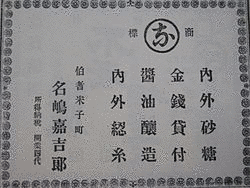 商標
内外砂糖
金銭貸付
醤油醸造
内外綛糸
伯耆米子町
名嶋嘉吉郎
所得納税